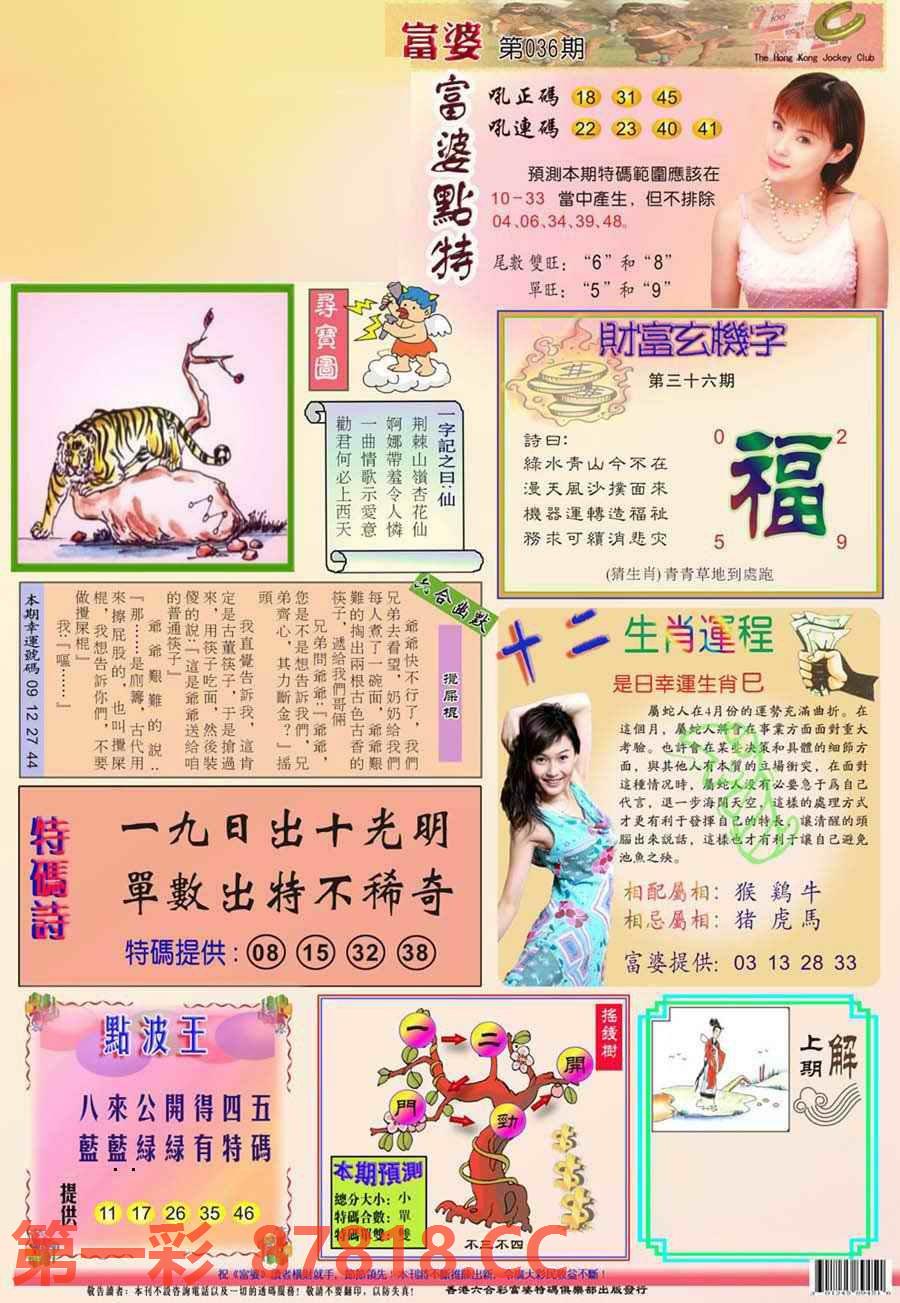 富婆 第036期
The Hong Kong Jockey Club
富婆點特
吼正碼 18 31 45
吼連碼 22 23 40 41
預測本期特碼範圍應該在
10-33 當中產生，但不排除
04、06、34、39、48。
尾數雙旺：“6”和“8”
單旺：“5”和“9”
尋寶圖
一字記之曰：仙
荆棘山嶺杏花仙
婀娜帶羞令人憐
一曲情歌示愛意
勸君何必上西天
財富玄機字
第三十六期
詩曰：
綠水青山今不在
漫天風沙撲面來
機器運轉造福祉
務求可續消悲灾
0 2
福
5 9
(猜生肖)青青草地到處跑
六合幽默
攪屎棍
爺爺快不行了，我們
兄弟去看望，奶奶給我們
每人煮了一碗面，爺爺艱
難的掏出兩根古色古香的
筷子，遞給我們哥倆
兄弟問爺爺：『爺爺，
您是不是想告訴我們，兄
弟齊心，其力斷金？』摇
頭
我直覺告訴我，這肯
定是古董筷子，于是搶過
來，用筷子吃面，然後裝
傻的説：『這是爺爺送給咱
的普通筷子』
爺爺艱難的説：
『那……是廁籌，古代用
來擦屁股的，也叫攪屎
棍，我想告訴你們，不要
做攪屎棍』
我：『嘔……』
本期幸運號碼 09 12 27 44
十二生肖運程
是日幸運生肖巳
屬蛇人在4月份的運勢充滿曲折。在
這個月，屬蛇人將會在事業方面面對重大
考驗。也許會在某些决策和具體的細節方
面，與其他人有本質的立場衝突，在面對
這種情况時，屬蛇人没有必要急于爲自己
代言，退一步海闊天空，這樣的處理方式
才更有利于發揮自己的特長，讓清醒的頭
腦出來説話，這樣也才有利于讓自己避免
池魚之殃。
相配屬相：猴 鷄 牛
相忌屬相：猪 虎 馬
富婆提供：03 13 28 33
特碼詩
一九日出十光明
單數出特不稀奇
特碼提供：08 15 32 38
點波王
八來公開得四五
藍藍緑緑有特碼
提供 11 17 26 35 46
摇錢樹
一 二 開
門 勁
本期預測
總分大小：小
特碼合數：單
特碼單雙：雙
不三不四
上期 解
第一彩 87818.CC
祝《富婆》讀者橫財就手，節節領先！本刊將不斷推陳出新，令廣大彩民收益不斷！
敬告讀者：本刊不設咨詢電話以及一切的透碼服務！敬請不要翻印，以防失真！
香港六合彩富婆特碼俱樂部出版發行